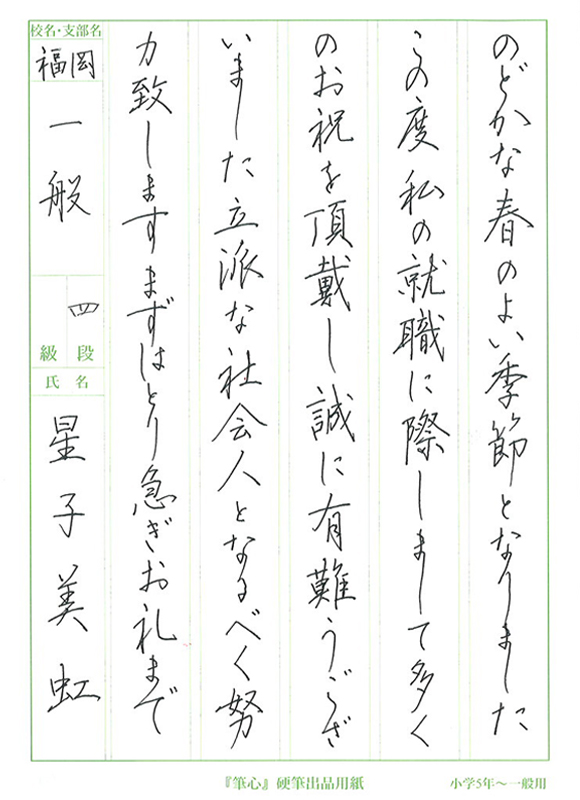 のどかな春のよい季節となりました
この度私の就職に際しまして多く
のお祝を頂戴し誠に有難うござ
いました立派な社会人となるべく努
力致しますまずはとり急ぎお礼まで
校名・支部名
福岡
一般
四
級 段
氏 名
星子美虹
『筆心』硬筆出品用紙
小学5年〜一般用